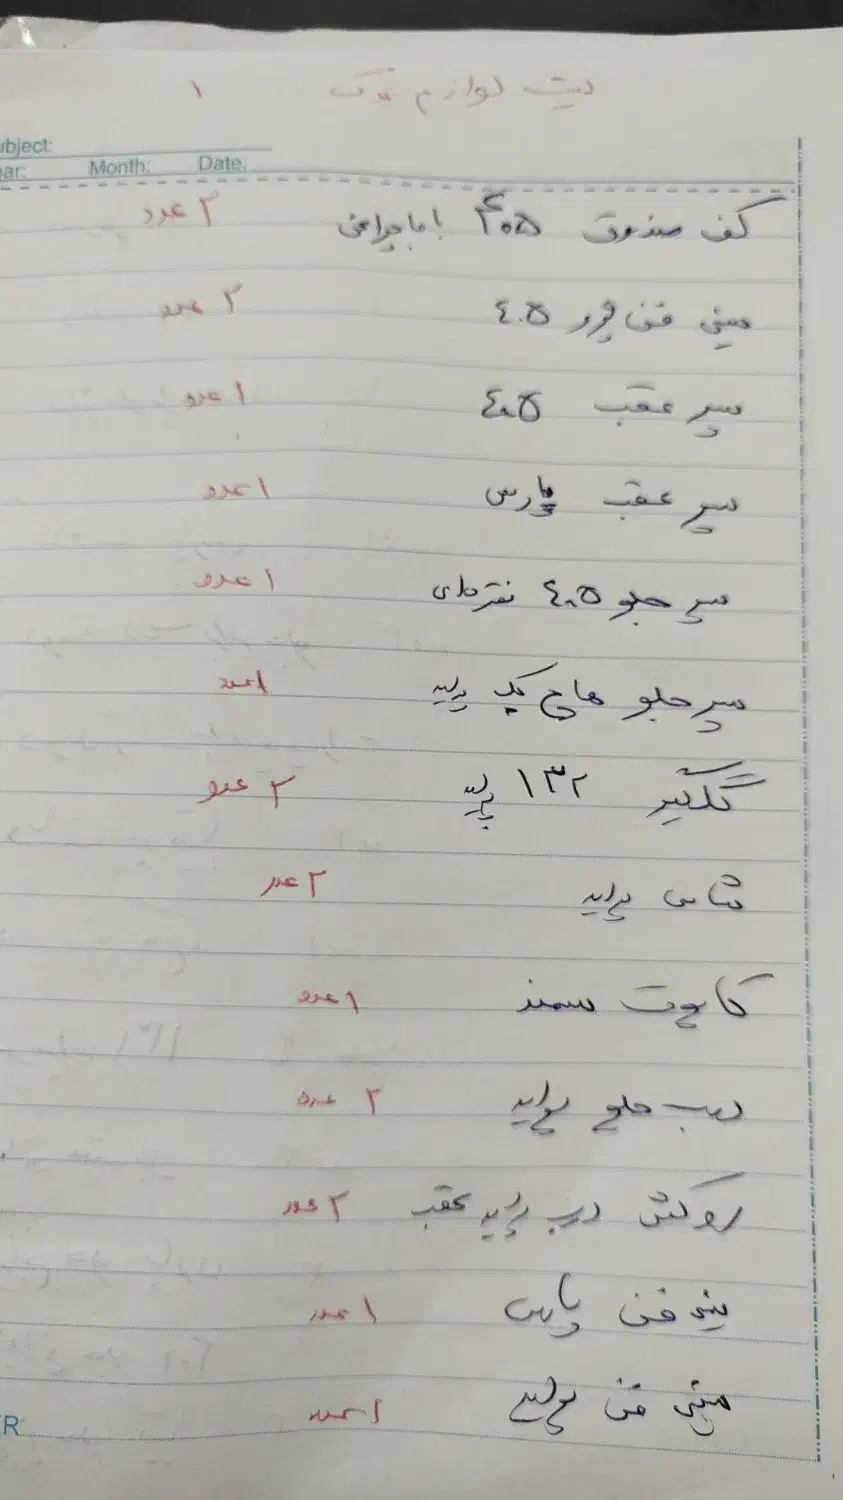 لیست لوازم یدک ۱
ubject:
ear: Month: Date:
کف صندوق ۴۰۵ با جاچراغی ۲ عدد
سینی فن پرو ۴۰۵ ۲ عدد
سپر عقب ۴۰۵ ۱ عدد
سپر عقب پارس ۱ عدد
سپر جلو ۴۰۵ نقره‌ای ۱ عدد
سپر جلو هاچ بک پراید ۱ عدد
گلگیر ۱۳۲ پراید ۲ عدد
شاسی پراید ۲ عدد
کاپوت سمند ۱ عدد
درب جلو پراید ۲ عدد
روکش درب پراید عقب ۲ عدد
سینی فن پارس ۱ عدد
سینی فن پراید ۱ عدد